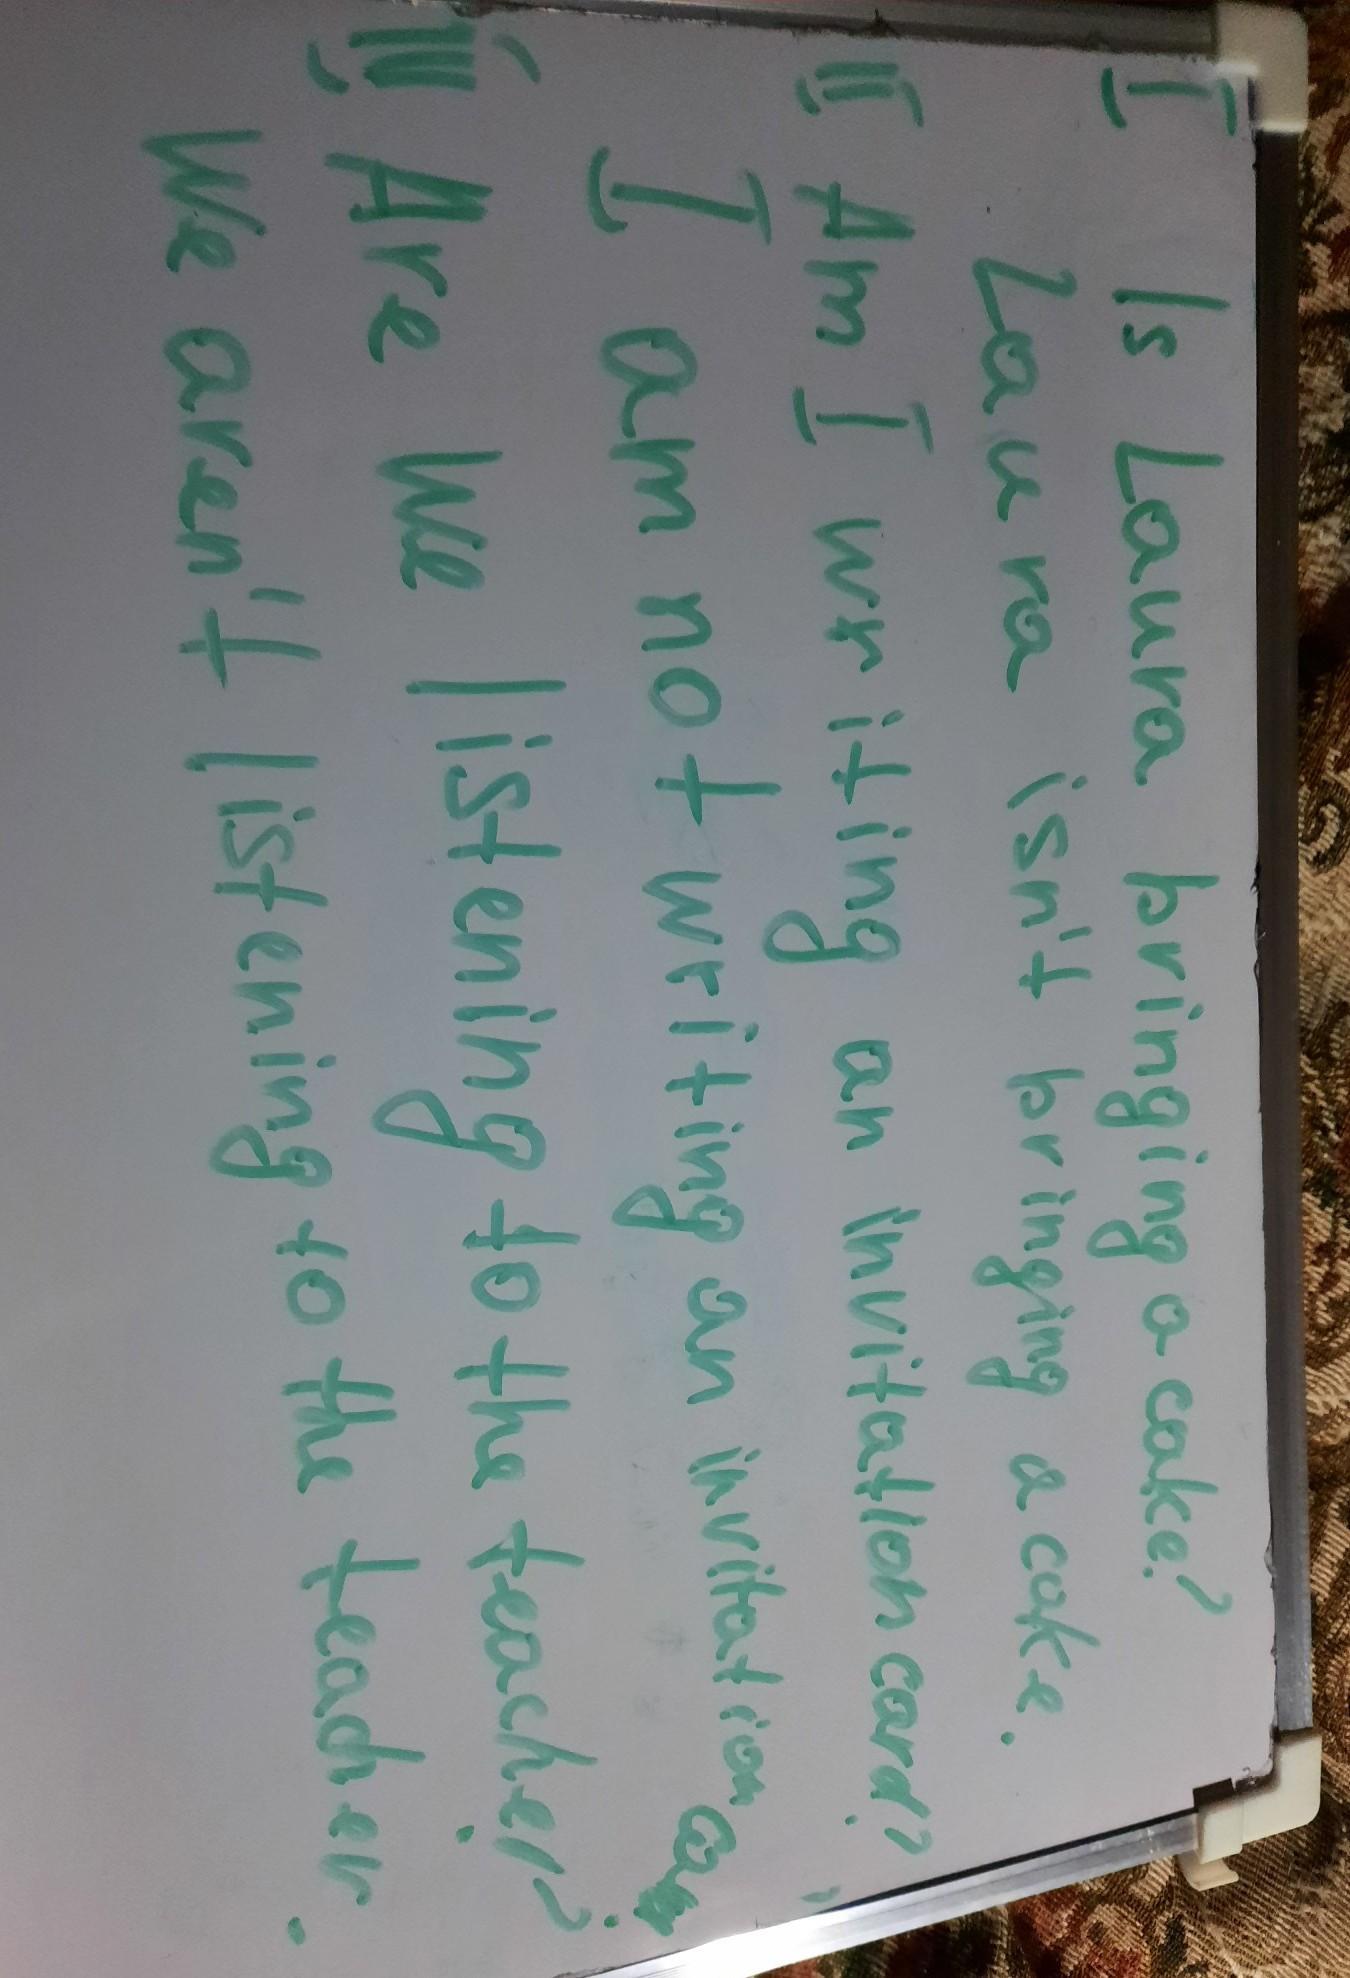 I Is Laura bringing a cake?
Laura isn't bringing a cake.
II Am I writing an invitation card?
I am not writing an invitation
III Are we listening to the teacher?
We aren't listening to the teacher.